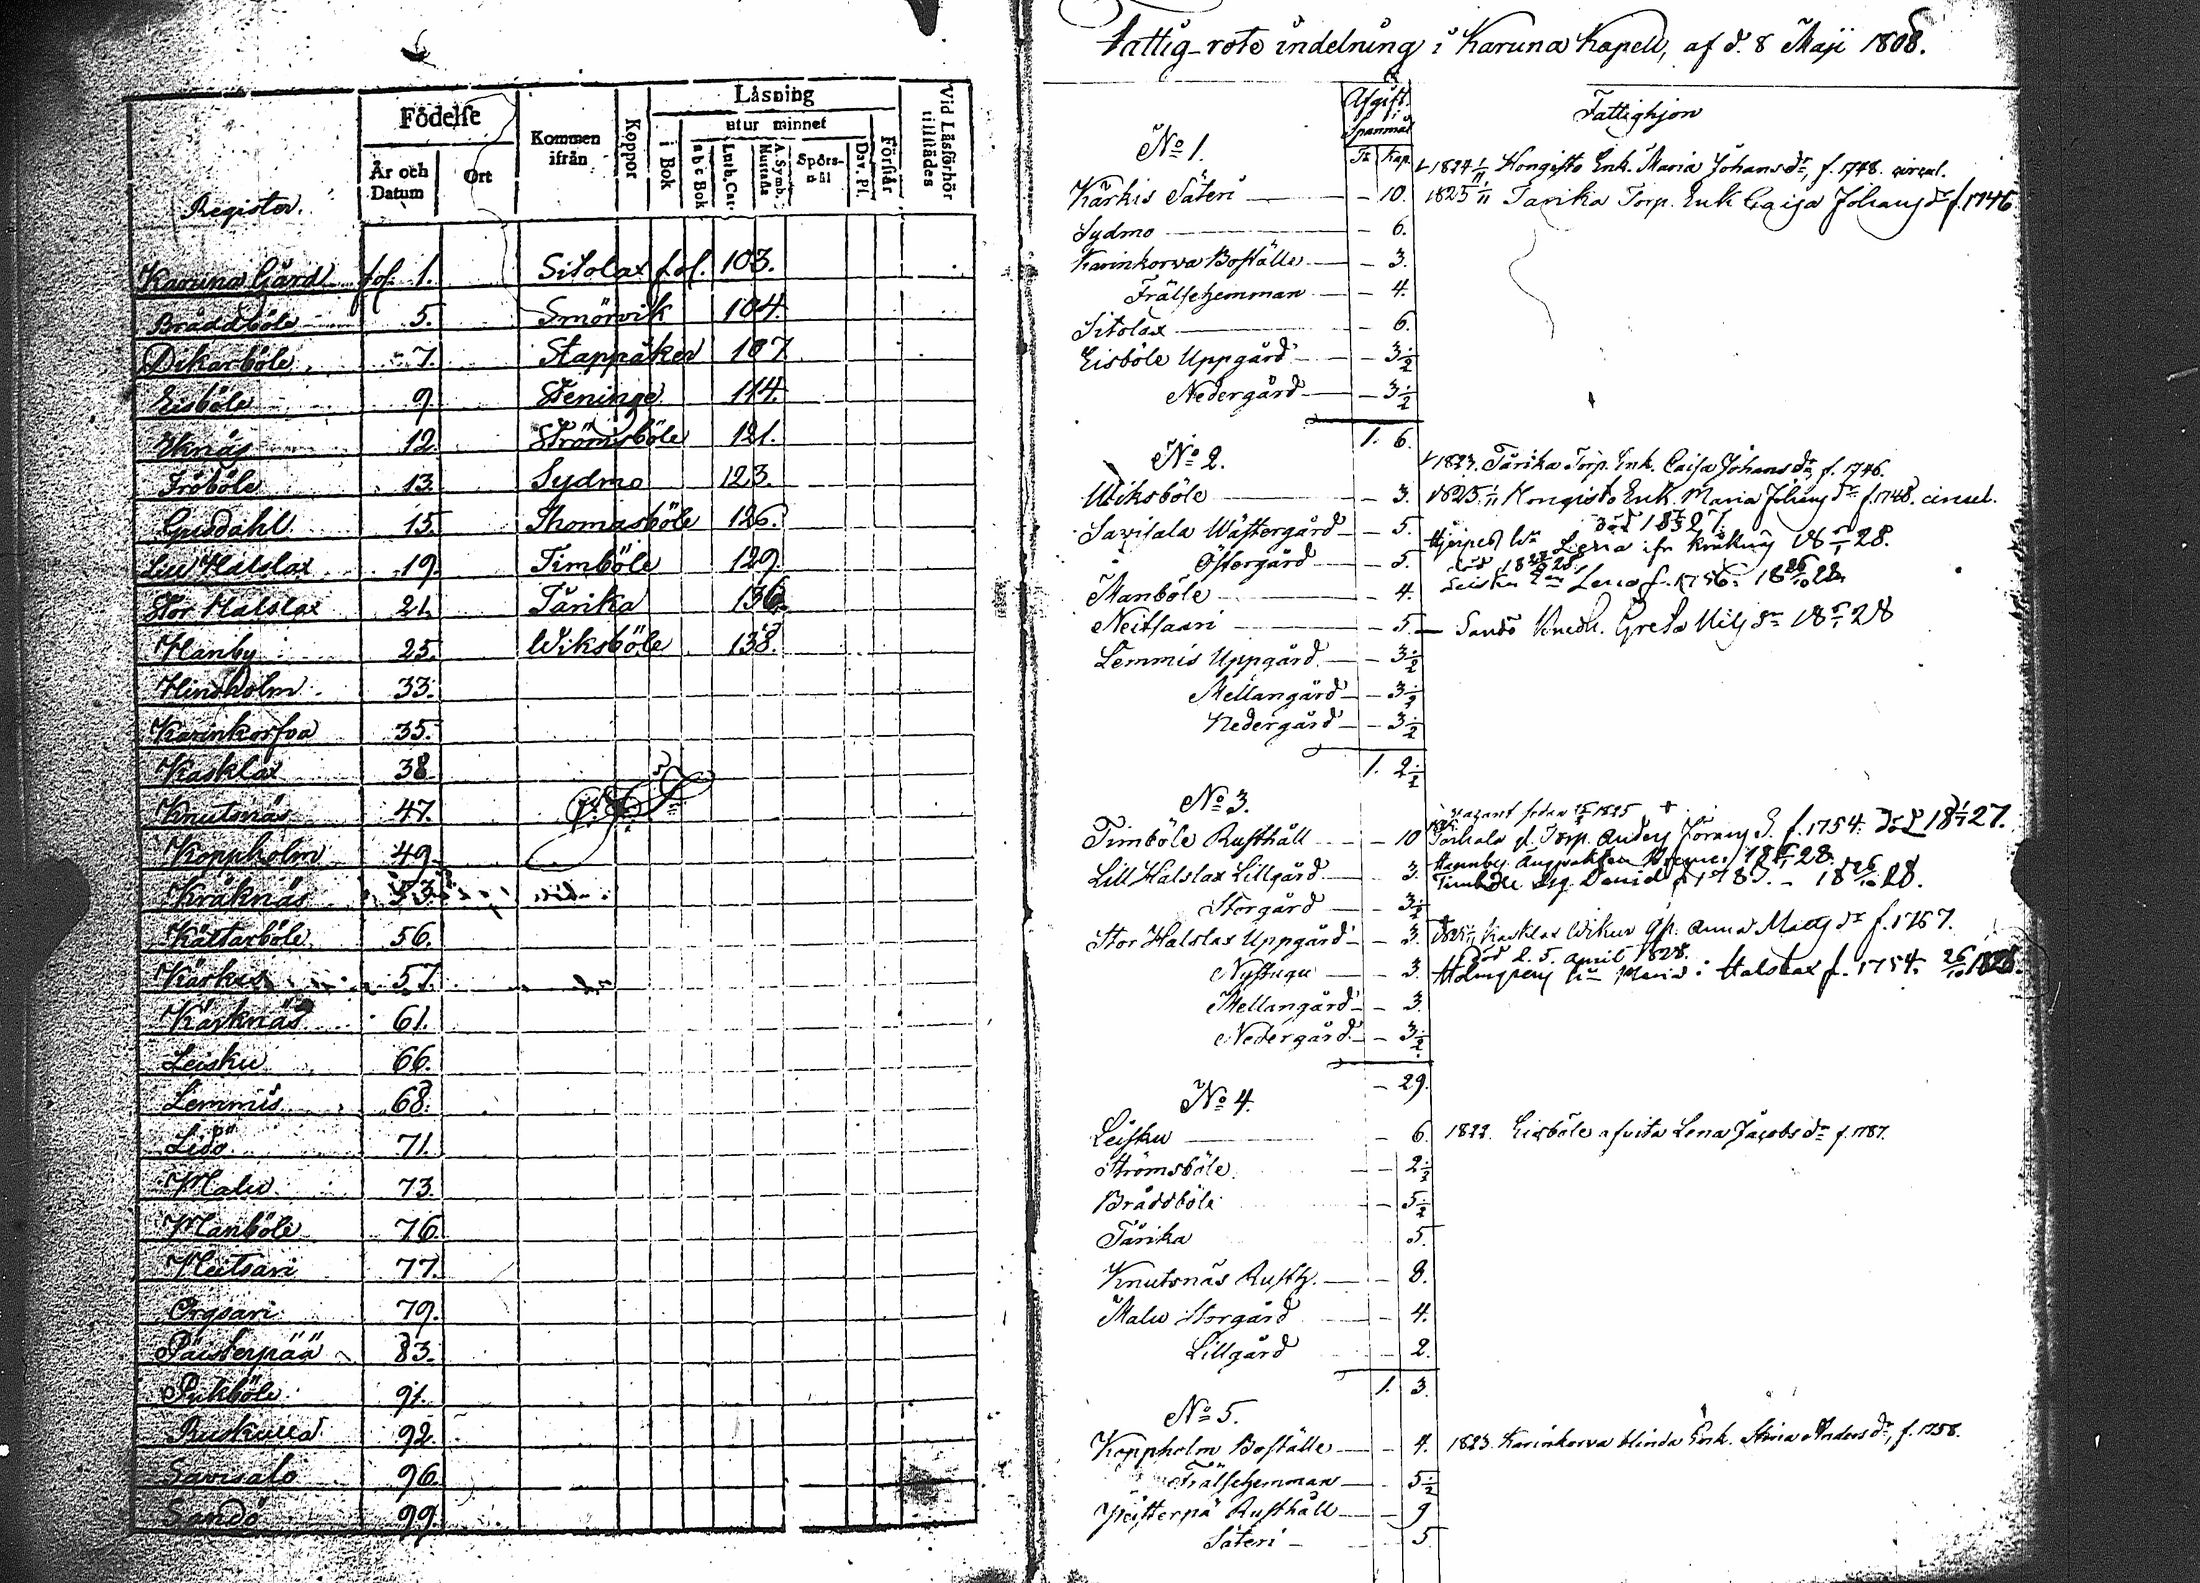 Register.
Födelse
År och Datum
Ort
Kommen ifrån
Koppor
Läsning
i Bok
utur minnet
a b c Bok
Luth. Cat.
A. Symb. Hustafla
Spörsmål
Dav. Ps.
Förstår
Vid Läsförhör tillstädes
Karuna Gård fol. 1. Sitolax fol. 103.
Bråddböle 5. Smörvik 104.
Dikarböle 7. Stappåker 107
Eisböle 9. Steninge 114.
12. Strömsböle 121.
Fröböle 13 Sydmo 123.
Gusdahl 15. Thomasböle 126.
Lill Halslax 19. Timböle 129.
Stor Halslax 21. Tärika 136.
Hanby 25. Wiksböle 138.
Hindholm 33.
Karinkorfva 35.
Kasklax 38
Knutsnäs 47.
Koppholm 49.
Kräknäs 53
Kättarböle 56.
Kärkis 57.
Karknäs 61.
Leisku 66.
Lemmis 68.
Lidö 71.
Malu 73.
Manböle 76.
Neitsari 77.
Orgsari 79.
Päisterpää 83.
Pukböle 91.
92.
Savisalo 96.
Sandö 99.
Fattig-rote indelning i Karuna Kapell, af d. 8 Maji 1808.
Afgift i Spannmål
Tr Kap.
Fattighjon
No 1.
1824 1/11 Hongisto Enk. Maria Johansdr, f. 1748.
Kärkis Säteri — 10. 1825 1/11 Tarika Torp. Enk Caisa Johansdr f. 1746
Sydmo — 6.
Karinkorva Boställe — 3.
Frälsehemman — 4.
Sitolax — 6.
Eisböle Uppgård — 3 1/2
Nedergård — 3 1/2
1. 6.
No 2.
1823. Tärika Torp. Enk. Caisa Johansdr, f. 1746.
Wiksböle — 3. 1825 1/11 Hongisto Enk. Maria Johansdr f. 1748.
Savisala Wästergård — 5.
Östergård — 5.
Manböle — 4.
Neitsaari — 5. — Sandö Greta
Lemmis Uppgård — 3 1/2
Mellangård — 3 1/2
Nedergård — 3 1/2
1. 2 1/2
No 3.
1825
Timböle Rusthåll — 10 Torp. Anders f. 1754.
Lill Halslax Lillgård — 3.
Storgård — 3 1/2 Timböle David
Stor Halslax Uppgård — 3. Kasklax Anna Mattsdr f. 1757.
död d. 5. April 1828.
Nystugu — 3. Maria i Halslax f. 1754.
Mellangård — 3.
Nedergård — 3 1/2
— 29.
No 4.
Leisku — 6. 1822. Eisböle afvita Lena Jacobsdr f. 1787.
Strömsböle — 2 1/2
Bråddböle — 5 1/2
Tärika 5.
Knutsnäs Rusth. — 8.
Malu Storgård — 4.
Lillgård 2.
1. 3.
No 5.
Koppholm Boställe — 4. 1823. Karinkorva blinda Enk. Stina Andersdr, f. 1758.
Frälsehemman — 5 1/2
Päisterpä Rusthåll — 9
Säteri — 5